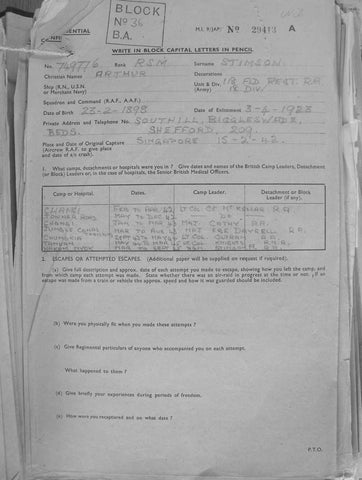 BLOCK
Nº 36
B.A.
CONFIDENTIAL
M.I. 9/JAP/ Nº 29413 A
WRITE IN BLOCK CAPITAL LETTERS IN PENCIL
No. Rank RSM. Surname STIMSON.
Christian Names ARTHUR Decorations
Ship (R.N., U.S.N. or Merchant Navy) Unit & Div. (Army) 118 FLD REGT. R.A. 18 DIV.
Squadron and Command (R.A.F., A.A.F.)
Date of Birth 23-2-1898 Date of Enlistment
Private Address and Telephone No. SOUTHILL, BIGGLESWADE,
BEDS. SHEFFORD, 209.
Place and Date of Original Capture SINGAPORE 15-2-42.
(Aircrew R.A.F. to give place and date of a/c crash).
1. What camps, detachments or hospitals were you in? Give dates and names of the British Camp Leaders, Detachment (or Block) Leaders or, in the case of hospitals, the Senior British Medical Officers.
Camp or Hospital. Dates. Camp Leader. Detachment or Block Leader (if any).
CHANGI FEB TO APR 42 LT COL R.A
MAY TO DEC 42
CHANGI JAN TO MAR 43 MAJ R.A.
MAR TO AUG 43 MAJ R.A.
LT COL OUTRAM R.A
LT COL KNIGHTS
2. ESCAPES OR ATTEMPTED ESCAPES. (Additional paper will be supplied on request if required).
(a) Give full description and approx. date of each attempt you made to escape, showing how you left the camp, and from which camp each attempt was made. State whether there was an air-raid in progress at the time or not. If an escape was made from a train or vehicle the approx. speed and how it was guarded should be included.
(b) Were you physically fit when you made these attempts ?
(c) Give Regimental particulars of anyone who accompanied you on each attempt.
What happened to them ?
(d) Give briefly your experiences during periods of freedom.
(e) How were you recaptured and on what date ?
P.T.O.